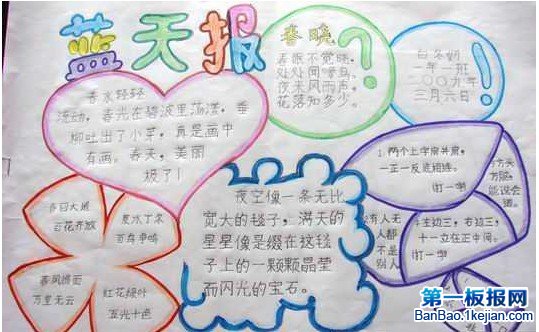 蓝天报
春水轻轻
流动，春光在碧波里荡漾，垂
柳吐出了小芽，真是画中
有画。春天，美丽
极了！
春晓
春眠不觉晓，
处处闻啼鸟。
夜来风雨声，
花落知多少。
？
一年一班
二〇〇九年
三月六日
！
夜空像一条无比
宽大的毯子，满天的
星星像是缀在这毯
子上的一颗颗晶莹
而闪光的宝石。
春回大地
百花开放
百鸟争鸣
春风拂面
万里无云
红花绿叶
五光十色
1.两个土字肩并肩，
一至一反底相连。
（打一字）
有人无
人都
不是
别人
左边三，右边三，
十一立在正中间。
（打一字）
第一板报网
BanBao.1kejian.com